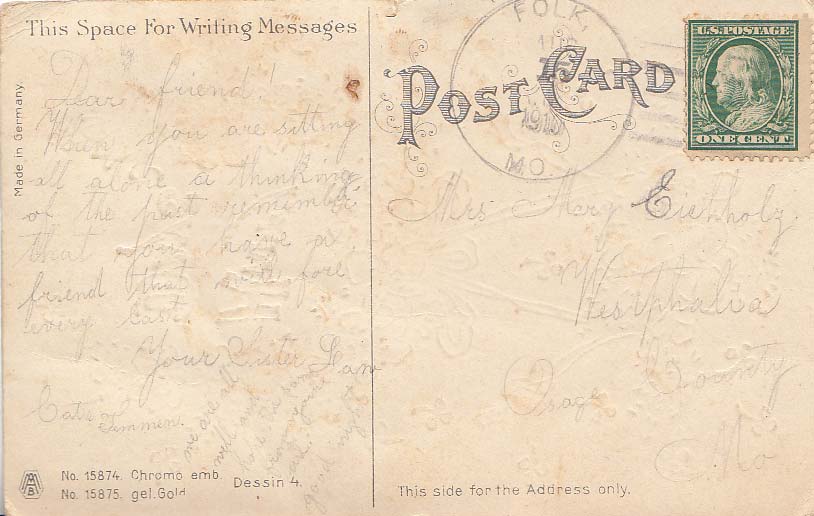 This Space For Writing Messages
Dear friend!
When you are sitting
all alone a thinking
of the past remember
that you have a
friend that will fore
every last
Your Sister Law
Cate
we are all
well and
hope the same
from you
all.
good night
Made in Germany.
No. 15874. Chromo emb.
No. 15875. gel. Gold
Dessin 4.
POST CARD
FOLK,
1910
MO.
U.S. POSTAGE
ONE CENT
Mrs Mary Eichholz.
Westphalia
Osage County
Mo
This side for the Address only.